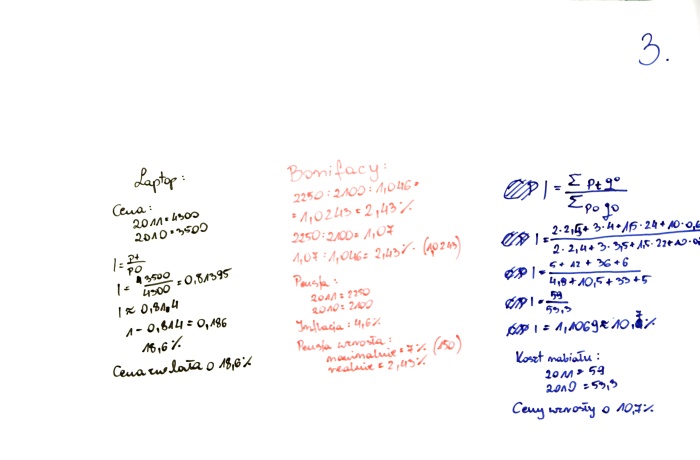 3.
Laptop:
Cena:
2011=4300
2010=3500
I = pt
p0
I = 3500
4300 = 0,81395
I ≈ 0,814
1 - 0,814 = 0,186
18,6%
Cena zmalała o 18,6%
Bonifacy:
2250 : 2100 : 1,046 =
= 1,0243 = 2,43%
2250 : 2100 = 1,07
1,07 : 1,046 = 2,43% (1,0243)
Pensja:
2011 = 2250
2010 = 2100
Inflacja: 4,6%
Pensja wzrosła:
nominalnie = 7% (150)
realnie = 2,43%
I = Σ pt q0
Σ p0 q0
I = 2·2,5 + 3·4 + 1,5·24 + 10·0,6
2·2,4 + 3·3,5 + 1,5·22 + 10·0,5
I = 5 + 12 + 36 + 6
4,8 + 10,5 + 33 + 5
I = 59
53,3
I = 1,1069 ≈ 10,7%
Koszt nabiału:
2011 = 59
2010 = 53,3
Ceny wzrosły o 10,7%